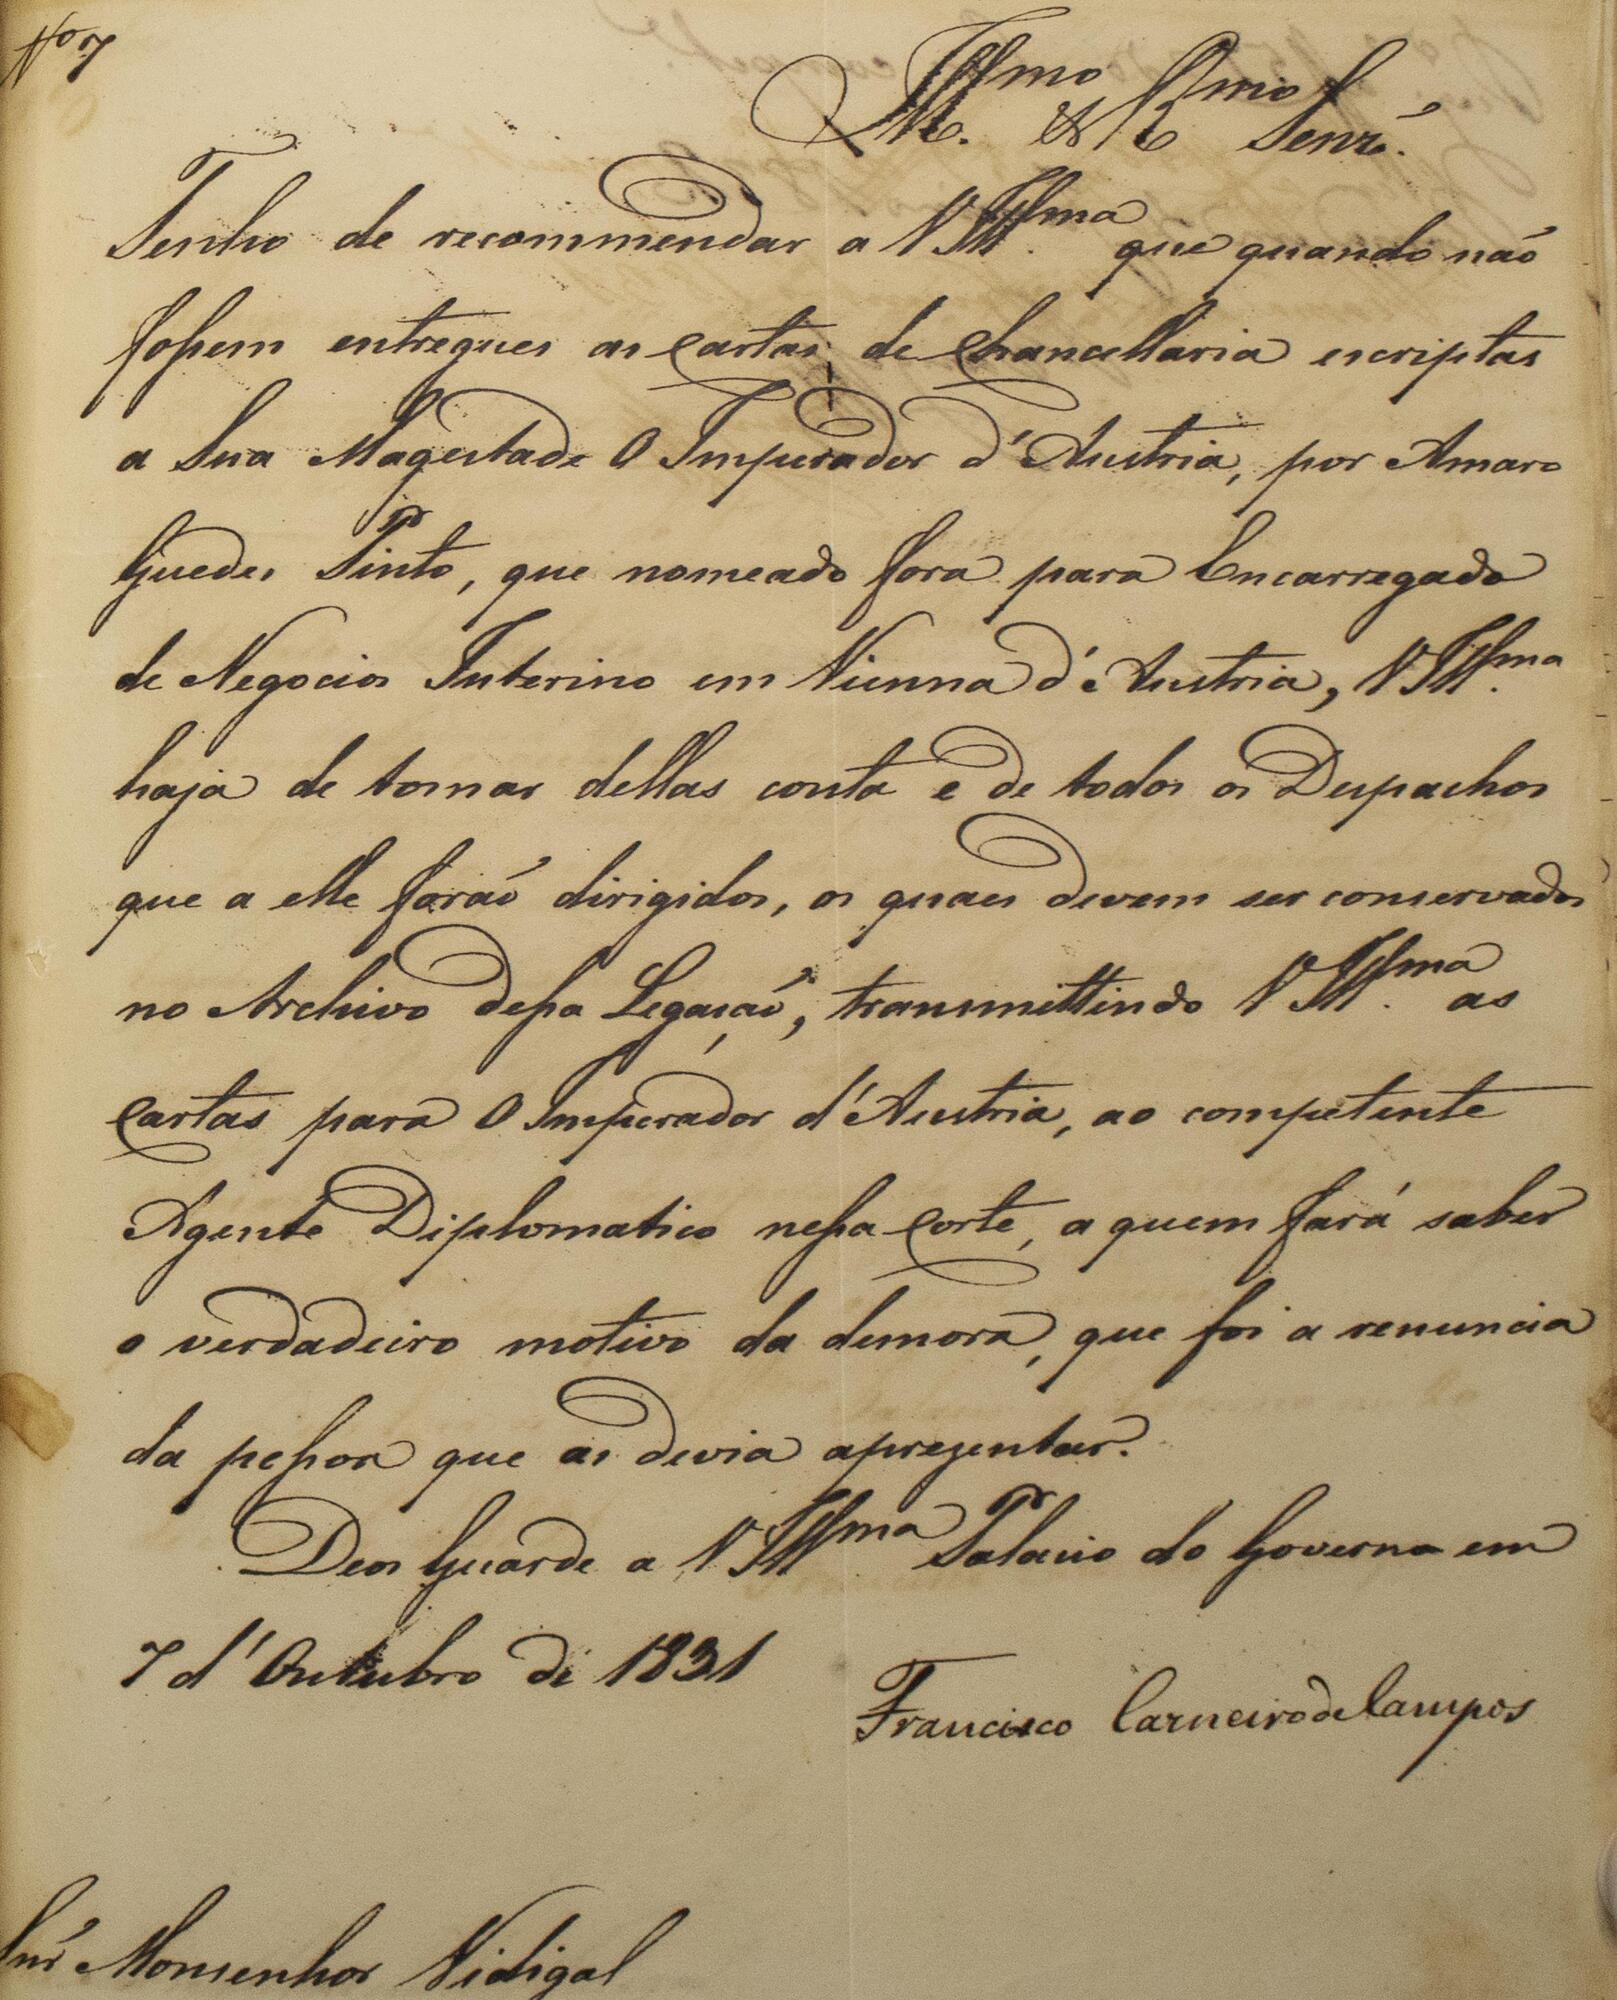 Nº 7
Illmo & Rmo Senr.
Tenho de recommendar a V Illma que quando não
fossem entregues as Cartas de Chancellaria escriptas
a Sua Magestade O Imperador d'Austria, por Amaro
Guedes Pinto, que nomeado fora para Encarregado
de Negocios Interino em Vienna d'Austria, V Illma
haja de tomar dellas conta e de todos os Despachos
que a elle forão dirigidos, os quaes devem ser conservados
no Archivo dessa Legação, transmittindo V Illma as
Cartas para O Imperador d'Austria, ao competente
Agente Diplomatico nessa Corte, a quem fará saber
o verdadeiro motivo da demora, que foi a renuncia
da pessoa que as devia aprezentar.
Deos Guarde a V Illma Palacio do Governo em
7 d'Outubro de 1831
Francisco Carneiro de Campos
Snr Monsenhor Vidigal